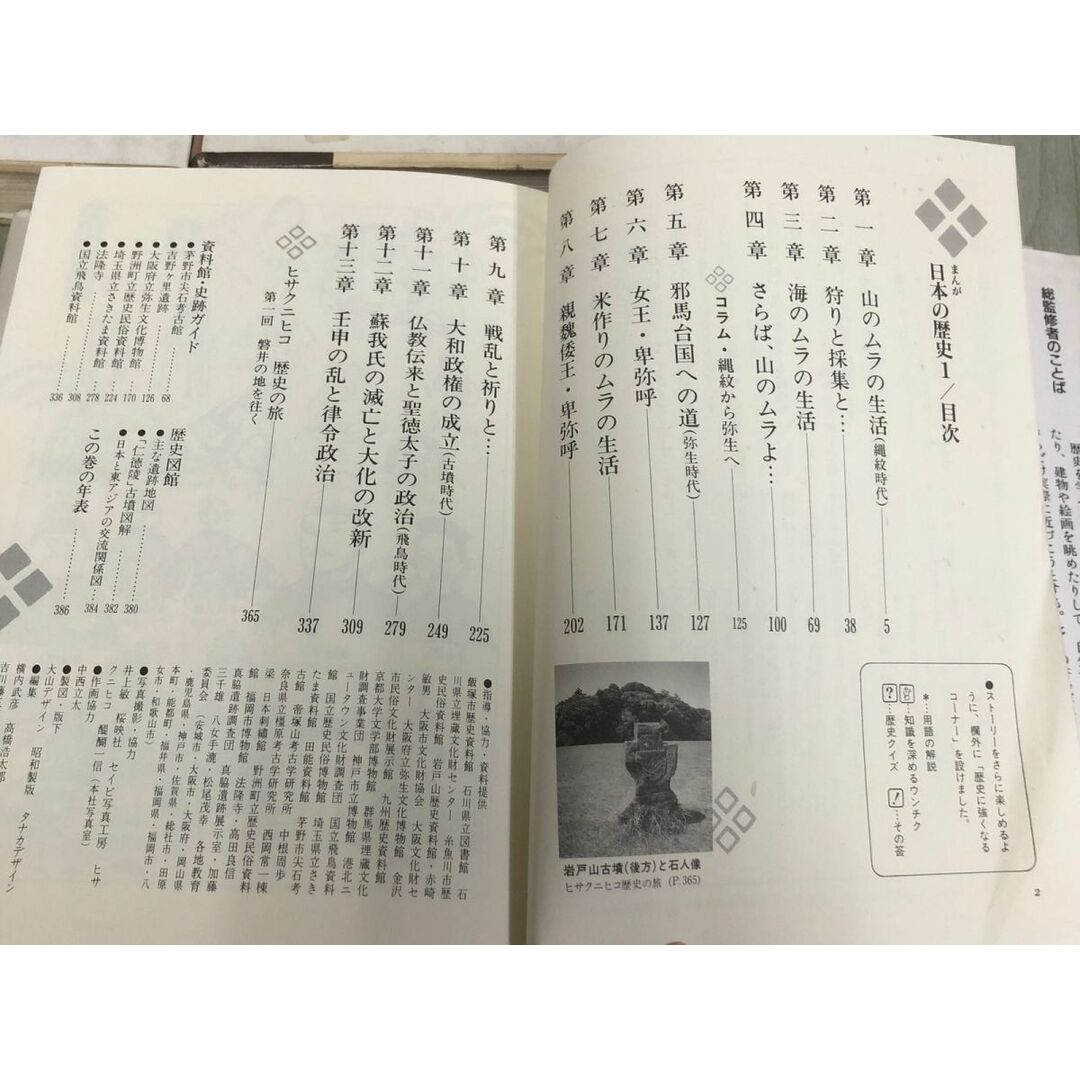 総監修者のことば
たり、建物や絵画を眺めたりして
まんが
日本の歴史1/目次
第一章 山のムラの生活(縄紋時代) 5
第二章 狩りと採集と… 38
第三章 海のムラの生活 69
第四章 さらば、山のムラよ… 100
コラム・縄紋から弥生へ 125
第五章 邪馬台国への道(弥生時代) 127
第六章 女王・卑弥呼 137
第七章 米作りのムラの生活 171
第八章 親魏倭王・卑弥呼 202
●ストーリーをさらに楽しめるよ
うに、欄外に「歴史に強くなる
コーナー」を設けました。
*…用語の解説
…知識を深めるウンチク
?…歴史クイズ !…その答
岩戸山古墳(後方)と石人像
ヒサクニヒコ歴史の旅 (P.365)
2
第九章 戦乱と祈りと… 225
第十章 大和政権の成立(古墳時代) 249
第十一章 仏教伝来と聖徳太子の政治(飛鳥時代) 279
第十二章 蘇我氏の滅亡と大化の改新 309
第十三章 壬申の乱と律令政治 337
ヒサクニヒコ 歴史の旅
第一回 磐井の地を往く 365
資料館・史跡ガイド
●茅野市尖石考古館 68
●吉野ヶ里遺跡 126
●大阪府立弥生文化博物館 170
●野洲町立歴史民俗資料館 224
●埼玉県立さきたま資料館 278
●法隆寺 308
●国立飛鳥資料館 336
歴史図館
●主な遺跡地図 380
●「仁徳陵」古墳図解 382
●日本と東アジアの交流関係図 384
この巻の年表 386
●指導・協力・資料提供
飯塚市歴史資料館 石川県立図書館 石
川県立埋蔵文化財センター 糸魚川市歴
史民俗資料館 岩戸山歴史資料館・赤崎
敏男 大阪市文化財協会 大阪文化財セ
ンター 大阪府立弥生文化博物館 金沢
市民俗文化財展示館 九州歴史資料館
京都大学文学部博物館 群馬県埋蔵文化
財調査事業団 神戸市立博物館 港北ニ
ュータウン文化財調査団 国立飛鳥資料
館 国立歴史民俗博物館 埼玉県立さき
たま資料館 田能資料館 茅野市尖石考
古館 帝塚山考古学研究所 中根周歩
奈良県立橿原考古学研究所 西岡常一棟
梁 日本刺繍館 野洲町立歴史民俗資料
館 福岡市博物館 法隆寺・高田良信
真脇遺跡調査団 真脇遺跡展示室・加藤
三千雄 八女手漉・松尾茂幸 各地教育
委員会 (安城市・大阪市・大阪府・岡山県
・鹿児島県・神戸市・佐賀県・総社市・田原
本町・能都町・福井県・福岡県・福岡市・八
女市・和歌山市)
●写真撮影・協力
井上敏 桜映社 セイビ写真工房 ヒサ
クニヒコ 醍醐一信(本社写真室)
●作画協力
中西立太
●製図・版下
大山デザイン 昭和製版 タナカデザイン
●編集
横内武彦 高橋浩太郎